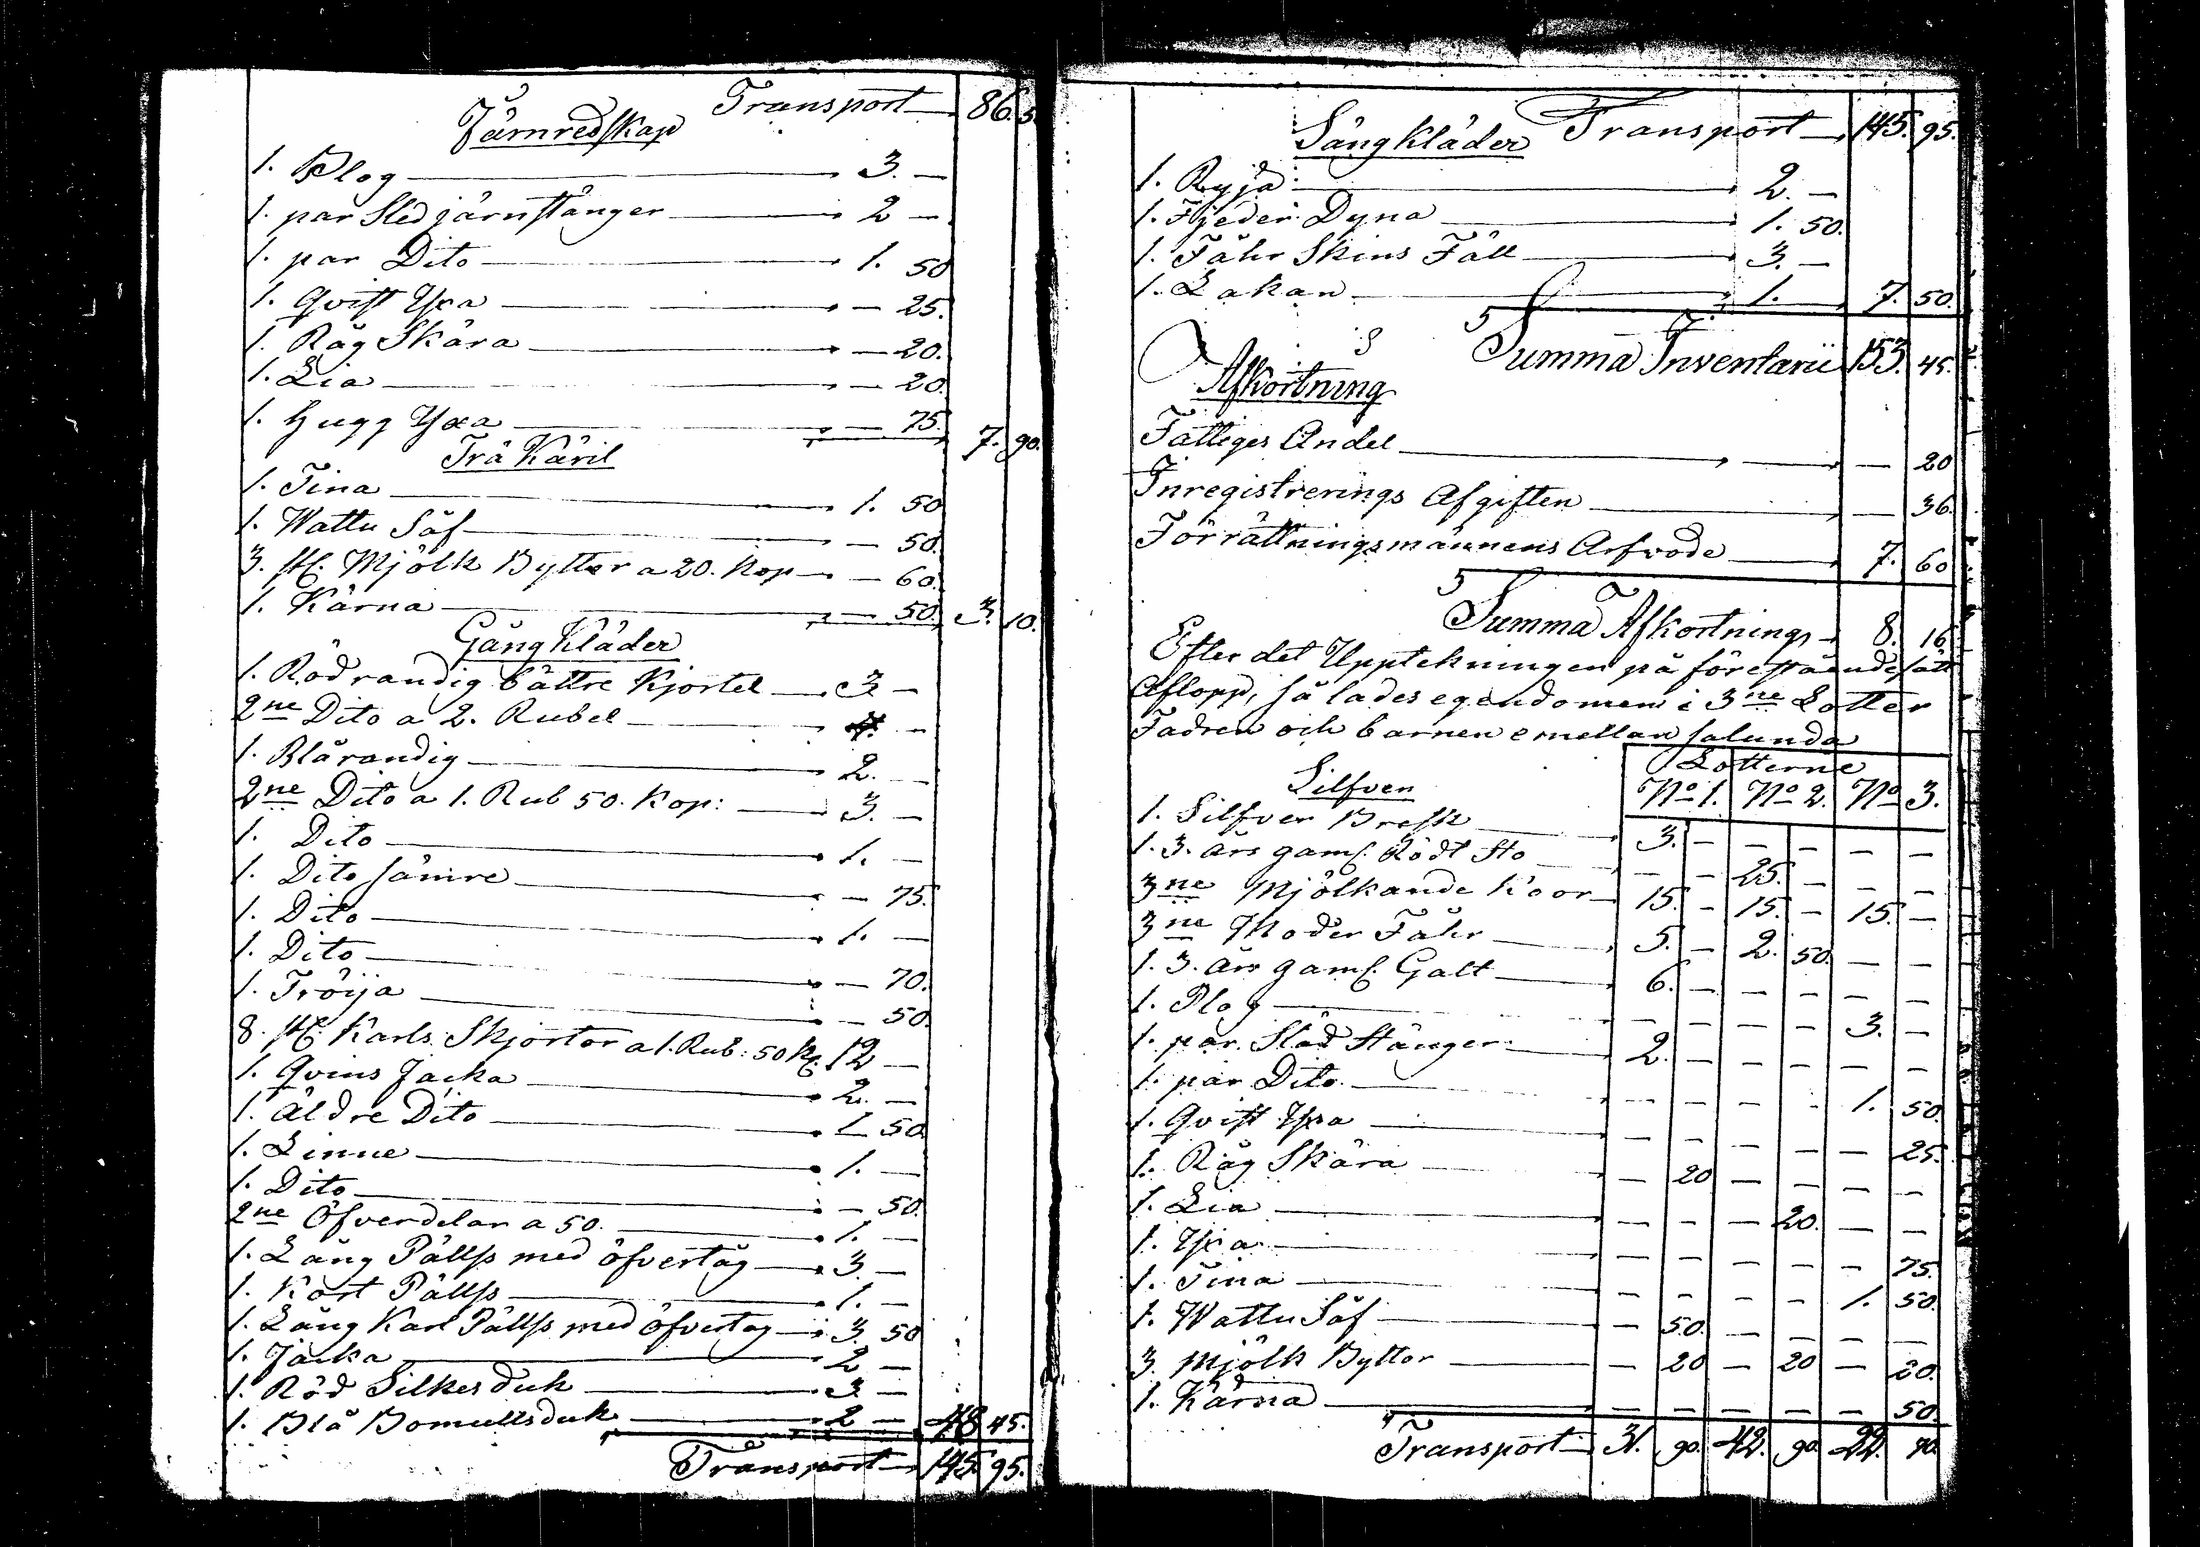 Transport 86. 5
Järnredskap
1. Plog 3. —
1. par Sled järnstånger 2 —
1. par Dito 1. 50
1. Qvist Yxa — 25.
1. Råg Skära — 20.
1. Lia — 20.
1. Hugg Yxa — 75. 7. 90.
Trä Käril
1. Tina 1. 50
1. Wattu Såf — 50.
3. st. Mjölk Byttor a 20. Kop — 60.
1. Kärna — 50. 3. 10.
Gång Kläder
1. Rödrandig bättre Kjortel 3 —
2ne Dito a 2. Rubel 4. —
1. Blårandig 2. —
2ne Dito a 1. Rub 50. Kop: 3. —
1. Dito 1. —
1. Dito sämre — 75.
1. Dito 1. —
1. Dito — 70.
1. Tröija — 50.
8. st. Karls Skjortor a 1. Rub: 50 K. 12 —
1. Qvins Jacka 2. —
1. Äldre Dito 1 50
1. Linne 1. —
1. Dito — 50.
2ne Öfverdelar a 50. 1. —
1. Lång Pälls med öfvertåg 3. —
1. Kort Pälls 1. —
1. Lång Karl Pälls med öfvertag 3. 50
1. Jacka 2 —
1. Röd Silkes duk 3 —
1. Blå Bomullsduk 2 — 48 45.
Transport 145. 95.
Sängkläder Transport 145. 95.
1. Ryja 2. —
1. Fjeder Dyna 1. 50.
1. Fåhr Skins Fäll 3. —
1. Lakan 1. 7. 50.
Summa Inventarii 153. 45.
Afkortning
Fattiges Andel — 20
Inregistrerings Afgiften — 36.
Förrättningsmännens Arfvode 7. 60
Summa Afkortning 8. 16
Efter det Upptekningen på föreståendesätt
Aflopp, så lades egendomen i 3ne Lotter
Fadren och barnen emellan salunda
Lotterne
Silfver No 1. No 2. No 3.
1. Silfver Bresk 3. — — — — —
1. 3. års gaml. Rödt Sto — — 25. — — —
3ne Mjölkande Koor 15. — 15. — 15. —
3ne Moder Fåhr 5. — 2. 50. — —
1. 3. års gaml. Galt 6. — — — — —
1. Plog — — — — 3. —
1. par. Släd Stänger 2. — — — — —
1. par Dito — — — — 1. 50.
1. Qvist Yxa — — — — — 25.
1. Råg Skära — 20 — — — —
1. Lia — — — 20. — —
1. Yxa — — — — — 75.
1. Tina — — — — 1. 50.
1. Wattu Såf — 50. — — — —
3. Mjölk Byttor — 20 — 20 — 20.
1. Kärna — — — — — 50.
Transport 31. 90. 42. 90 22. 70.